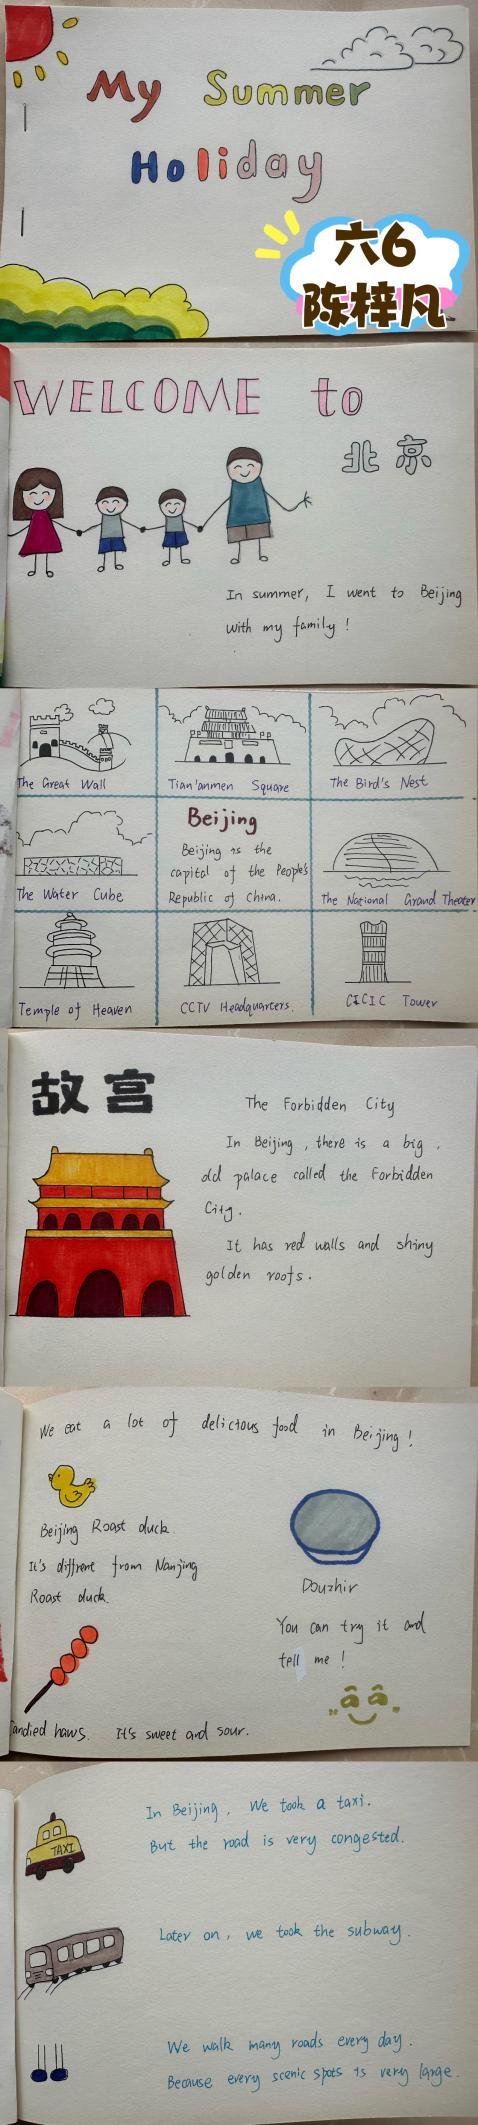 My Summer
Holiday
六6
陈梓凡
WELCOME to
北京
In summer, I went to Beijing
with my family!
The Great Wall
Tian'anmen Square
The Bird's Nest
The Water Cube
Beijing
Beijing is the
capital of the People's
Republic of China.
The National Grand Theater
Temple of Heaven
CCTV Headquarters.
CICIC Tower
故宫
The Forbidden City
In Beijing, there is a big,
old palace called the Forbidden
City.
It has red walls and shiny
golden roofs.
We eat a lot of delicious food in Beijing!
Beijing Roast duck.
It's diffrent from Nanjing
Roast duck.
Douzhir
You can try it and
tell me!
Candied haws. It's sweet and sour.
TAXI
In Beijing, We took a taxi.
But the road is very congested.
Later on, we took the subway.
We walk many roads every day.
Because every scenic spots is very large.